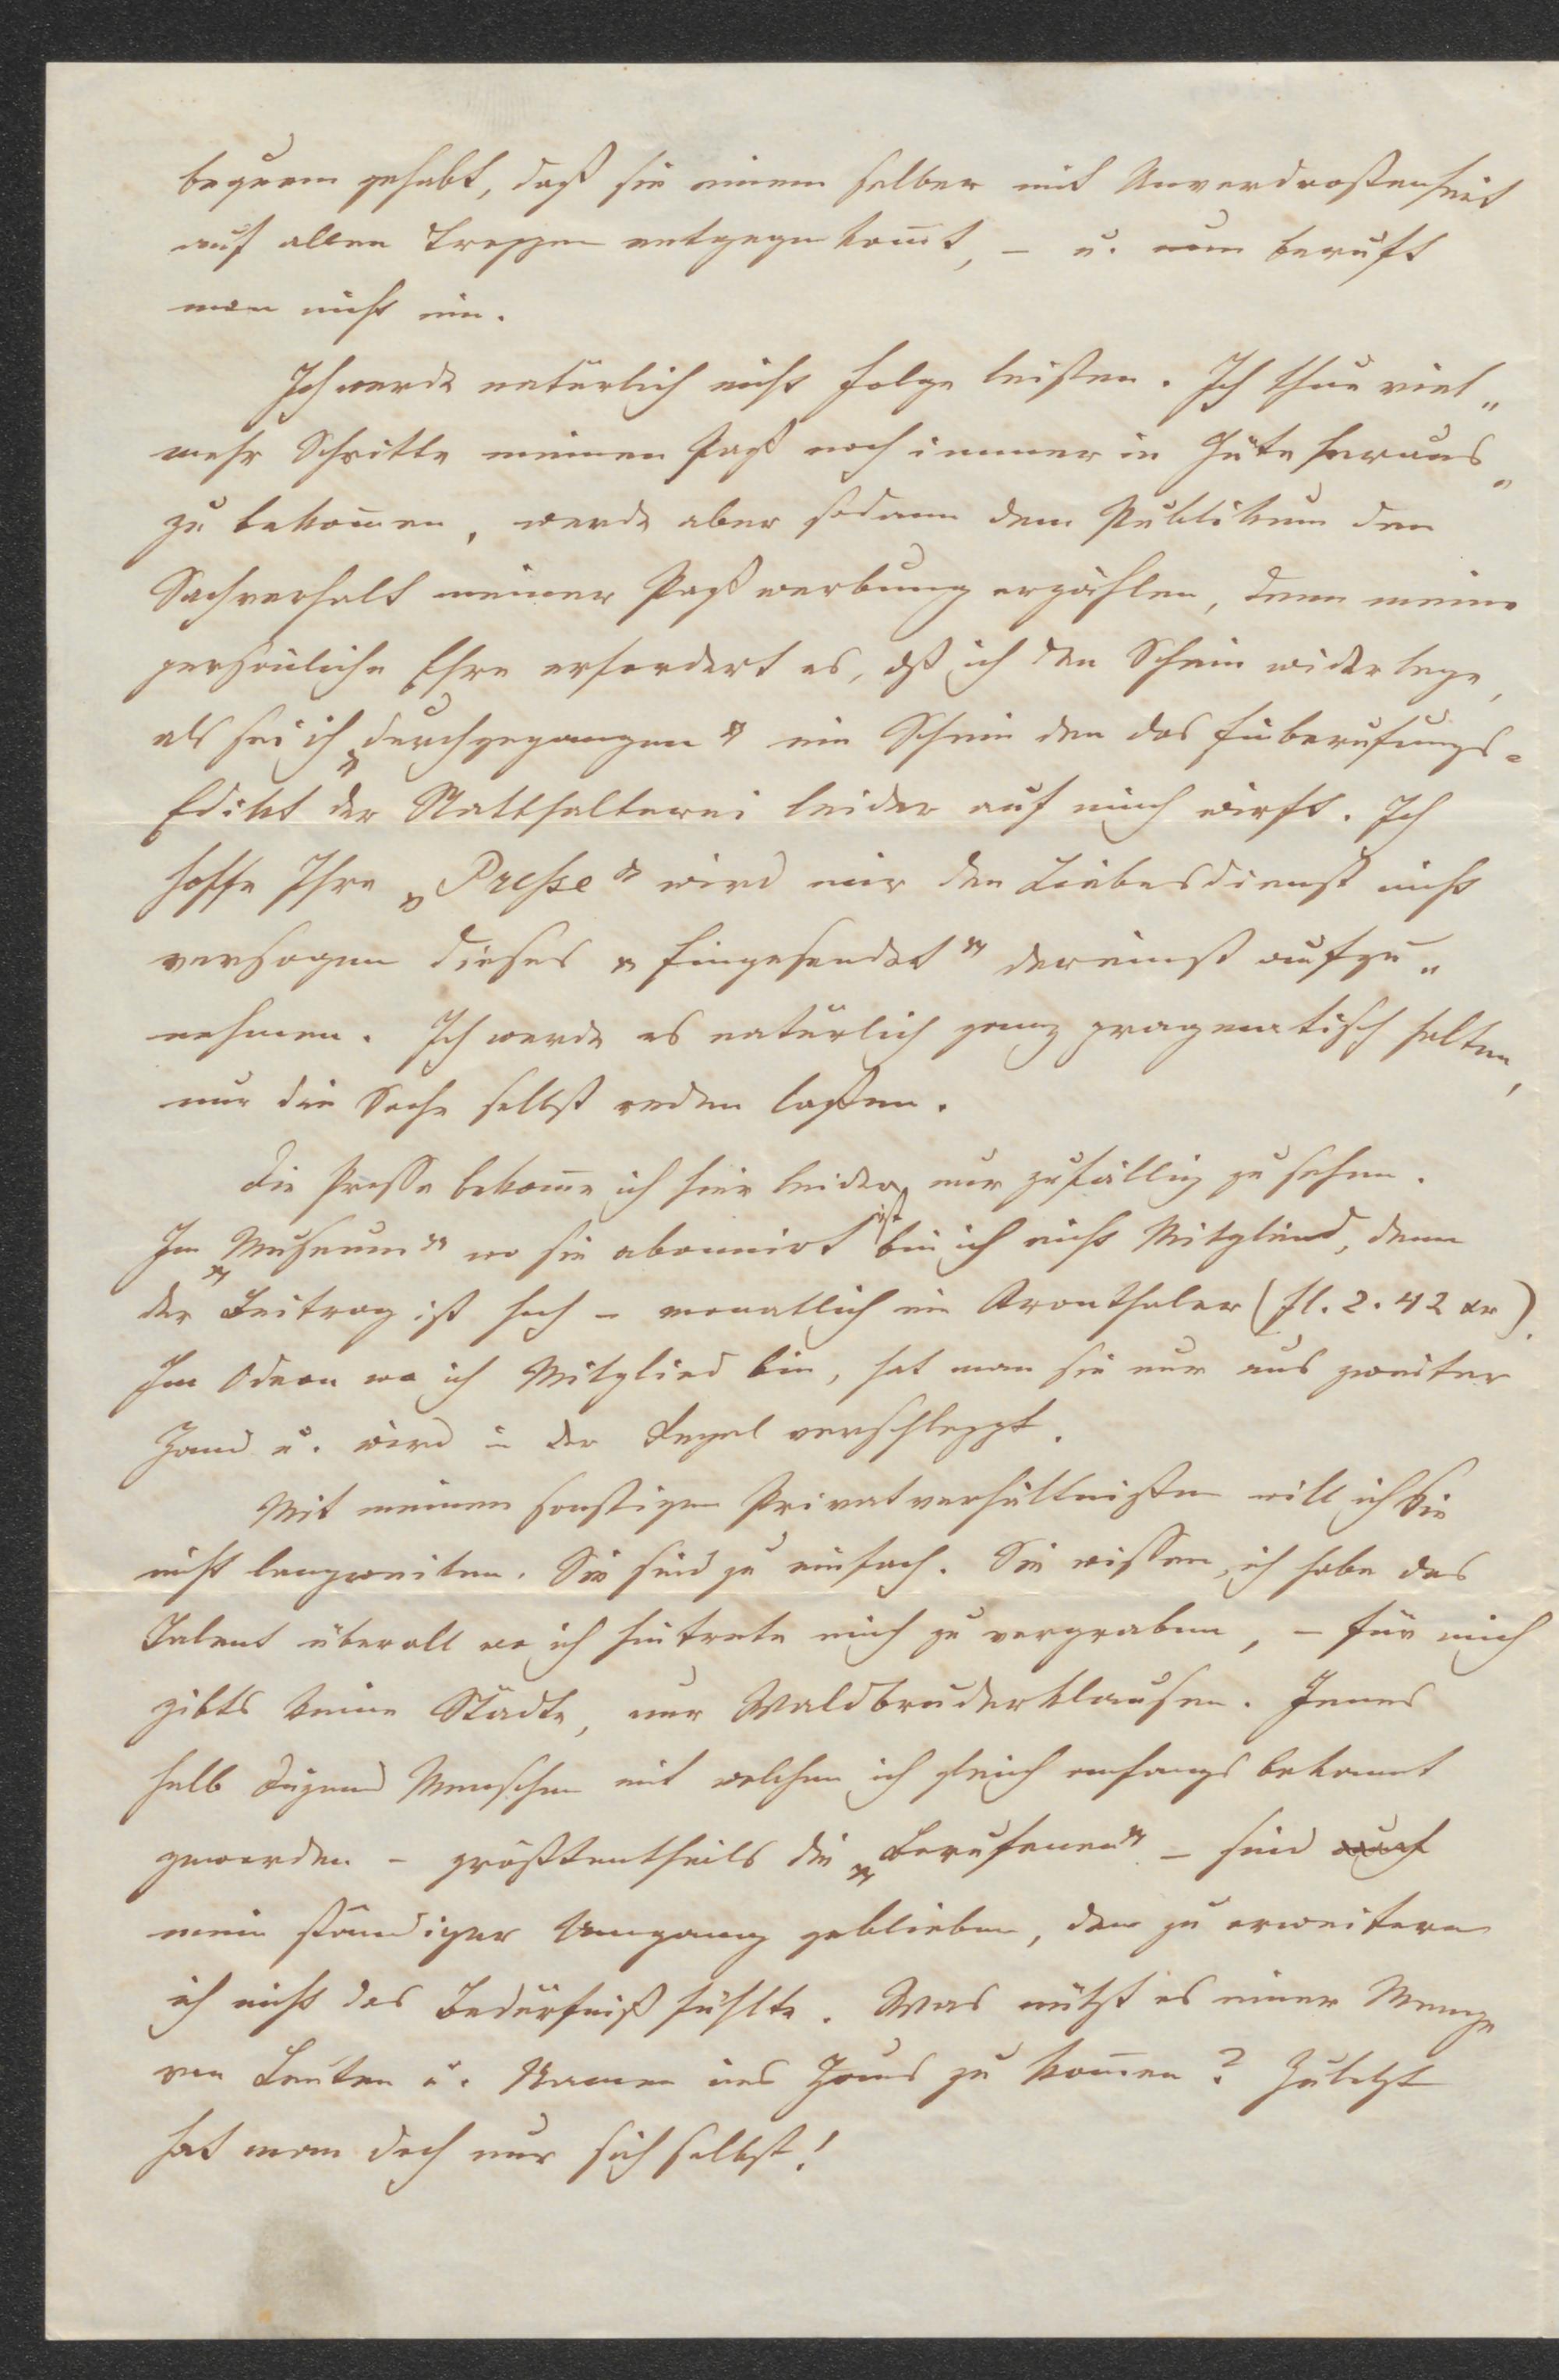 bequem gehabt, daß sie einem selber mit Unverdroßenheit
auf allen Treppen entgegen kom̄t, – u. nun beruft
man nicht ein.
Ich werde natürlich nicht Folge leisten. Ich thue viel„
mehr Schritte meinen Paß noch immer in Güte heraus„
zu bekom̄en, werde aber sodann dem Publikum den
Sachverhalt meiner Paßwerbung erzählen, denn meine
persönliche Ehre erfordert es, dß ich den Schein widerlege,
als sei ich „durchgegangen“ ein Schein den das Einberufungs=
Edikt der Statthalterei leider auf mich wirft. Ich
hoffe Ihre „Preße“ wird mir den Liebesdienst nicht
versagen dieses „Eingesendet“ dereinst aufzu„
nehmen. Ich werde es natürlich ganz pragmatisch halten,
nur die Sache selbst reden laßen.
Die Presse bekom̄e ich hier leider nur zufällig zu sehen.
Im „Museum“ wo sie abonnirt ist bin ich nicht Mitglied, denn
der Beitrag ist hoch – monatlich ein Kronthaler (fl. 2. 42 xr).
Im Odeon wo ich Mitglied bin, hat man sie nur aus zweiter
Hand u. wird in der Regel verschleppt.
Mit meinen sonstigen Privatverhältnißen will ich Sie
nicht langweilen. Sie sind zu einfach. Sie wissen, ich habe das
Talent überall wo ich hintrete mich zu vergraben, – für mich
gibts keine Städte, nur Waldbruderklausen. Jenes
halb Duzend Menschen mit welchen ich gleich anfangs bekannt
geworden – größtentheils die „Berufenen“ – sind auch
mein ständiger Umgang geblieben, den zu erweitern
ich nicht das Bedürfniß fühlte. Was nützt es einer Menge
von Leuten u. Namen ins Haus zu kom̄en? Zuletzt
hat man doch nur sich selbst!